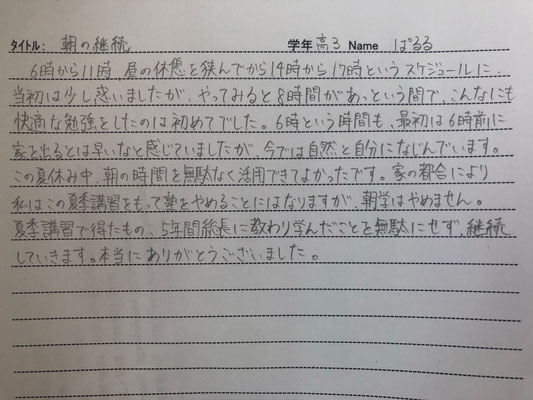 タイトル: 朝の継続 学年 高3 Name ぱるる
6時から11時 昼の休憩を挟んでから14時から17時というスケジュールに、
当初は少し惑いましたが、やってみると8時間があっという間で、こんなにも
快適な勉強をしたのは初めてでした。6時という時間も、最初は6時前に
家を出るとは早いなと感じていましたが、今では自然と自分になじんでいます。
この夏休み中、朝の時間を無駄なく活用できてよかったです。家の都合により
私はこの夏季講習をもって塾をやめることにはなりますが、朝学はやめません。
夏季講習で得たもの、5年間総長に教わり学んだことを無駄にせず、継続
していきます。本当にありがとうございました。